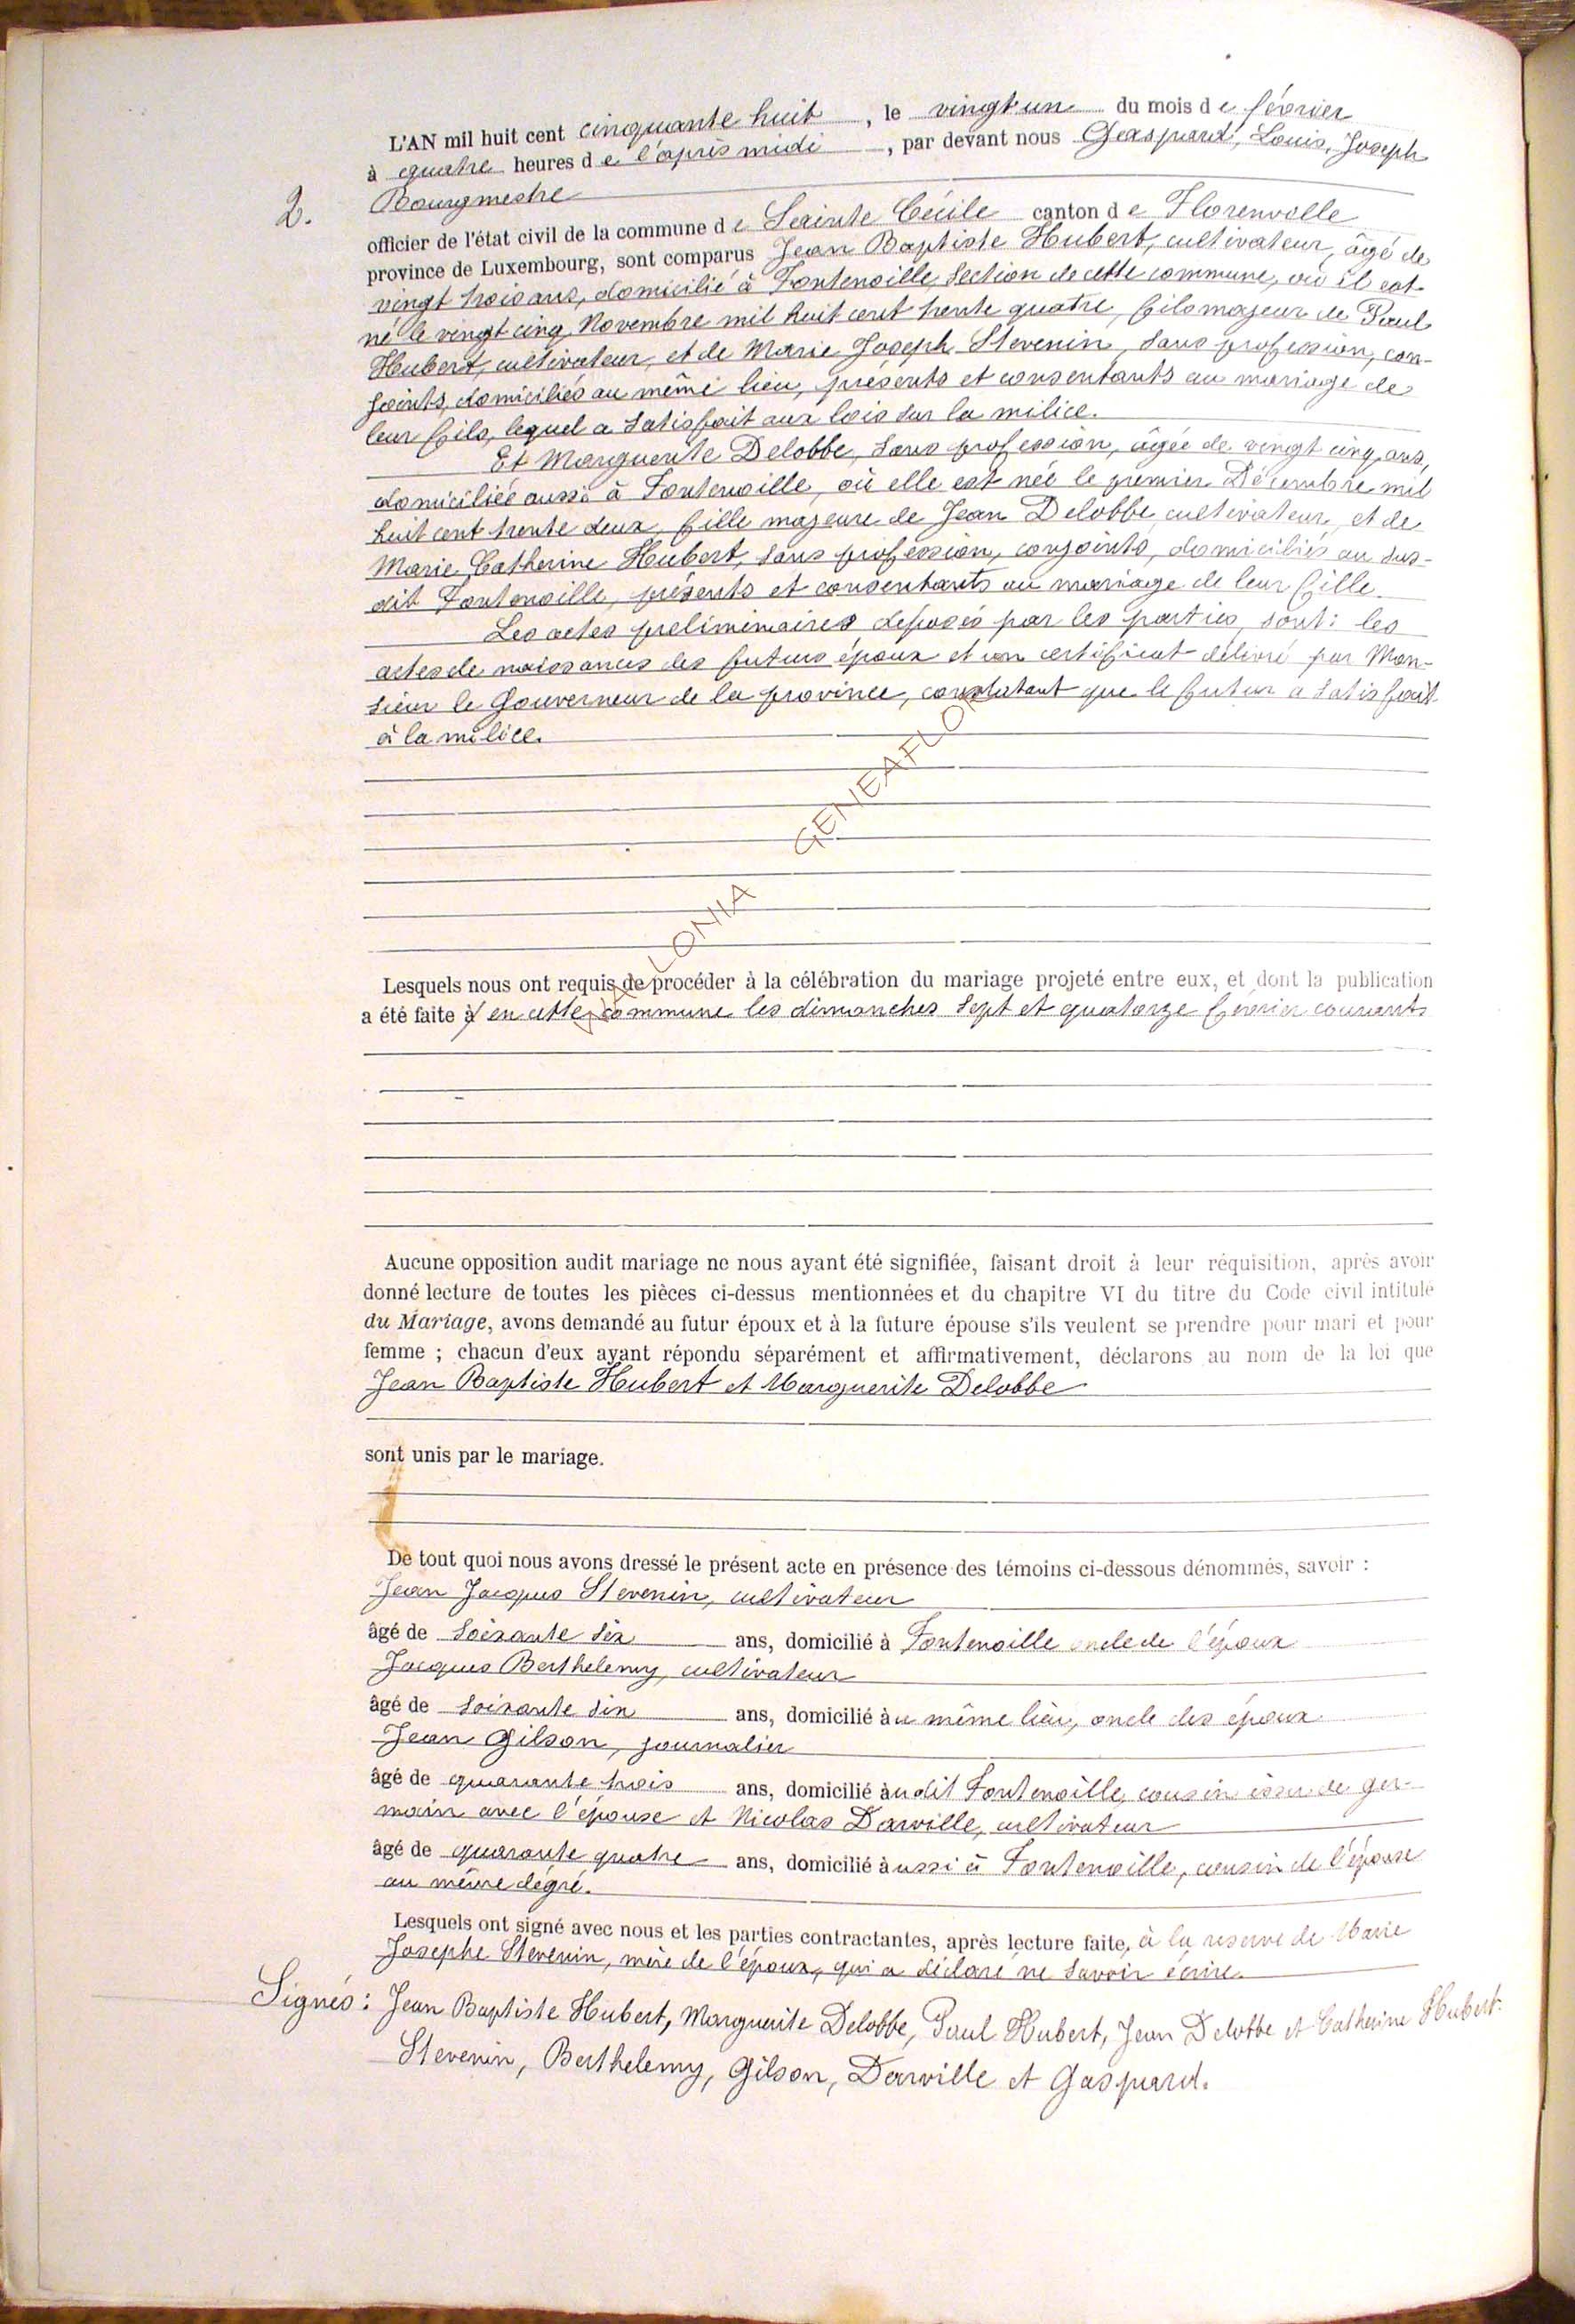 L'AN mil huit cent cinquante huit, le vingt un du mois de février
à quatre heures de l'après midi, par devant nous Gaspard, Louis, Joseph
2. Bourgmestre
officier de l'état civil de la commune de Sainte Cécile canton de Florenville
province de Luxembourg, sont comparus Jean Baptiste Hubert, cultivateur, âgé de
vingt trois ans, domicilié à Fontenoille, section de cette commune, où il est
né le vingt cinq Novembre mil huit cent trente quatre, fils majeur de Paul
Hubert, cultivateur, et de Marie Joseph Stevenin, sans profession, con-
joints, domiciliés au même lieu, présents et consentants au mariage de
leur fils, lequel a satisfait aux lois sur la milice.
Et Marguerite Delobbe, sans profession, âgée de vingt cinq ans,
domiciliée aussi à Fontenoille, où elle est née le premier Décembre mil
huit cent trente deux, fille majeure de Jean Delobbe cultivateur, et de
Marie Catherine Hubert, sans profession, conjoints, domiciliés au sus-
dit Fontenoille, présents et consentants au mariage de leur fille.
Les actes preliminaires déposés par les parties, sont: les
actes de naissances des futurs époux et un certificat délivré par Mon-
sieur le Gouverneur de la province, constatant que le futur a satisfait
à la milice.
LONIA GENEAFLOR
Lesquels nous ont requis de procéder à la célébration du mariage projeté entre eux, et dont la publication
a été faite à en cette commune les dimanches sept et quatorze février courants
Aucune opposition audit mariage ne nous ayant été signifiée, faisant droit à leur réquisition, après avoir
donné lecture de toutes les pièces ci-dessus mentionnées et du chapitre VI du titre du Code civil intitulé
du Mariage, avons demandé au futur époux et à la future épouse s'ils veulent se prendre pour mari et pour
femme ; chacun d'eux ayant répondu séparément et affirmativement, déclarons au nom de la loi que
Jean Baptiste Hubert et Marguerite Delobbe
sont unis par le mariage.
De tout quoi nous avons dressé le présent acte en présence des témoins ci-dessous dénommés, savoir :
Jean Jacques Stevenin, cultivateur
âgé de soixante six ans, domicilié à Fontenoille oncle de l'époux
Jacques Berthelemy, cultivateur
âgé de soixante six ans, domicilié au même lieu, oncle des époux
Jean Gilson, journalier
âgé de quarante trois ans, domicilié audit Fontenoille, cousin issu de ger-
main avec l'épouse et Nicolas Darville, cultivateur
âgé de quarante quatre ans, domicilié aussi à Fontenoille, cousin de l'épouse
au même dégré.
Lesquels ont signé avec nous et les parties contractantes, après lecture faite, à la reserve de Marie
Josephe Stevenin, mère de l'époux, qui a déclaré ne savoir écrire.
Signés: Jean Baptiste Hubert, Marguerite Delobbe, Paul Hubert, Jean Delobbe et Catherine Hubert.
Stevenin, Berthelemy, Gilson, Darville et Gaspard.